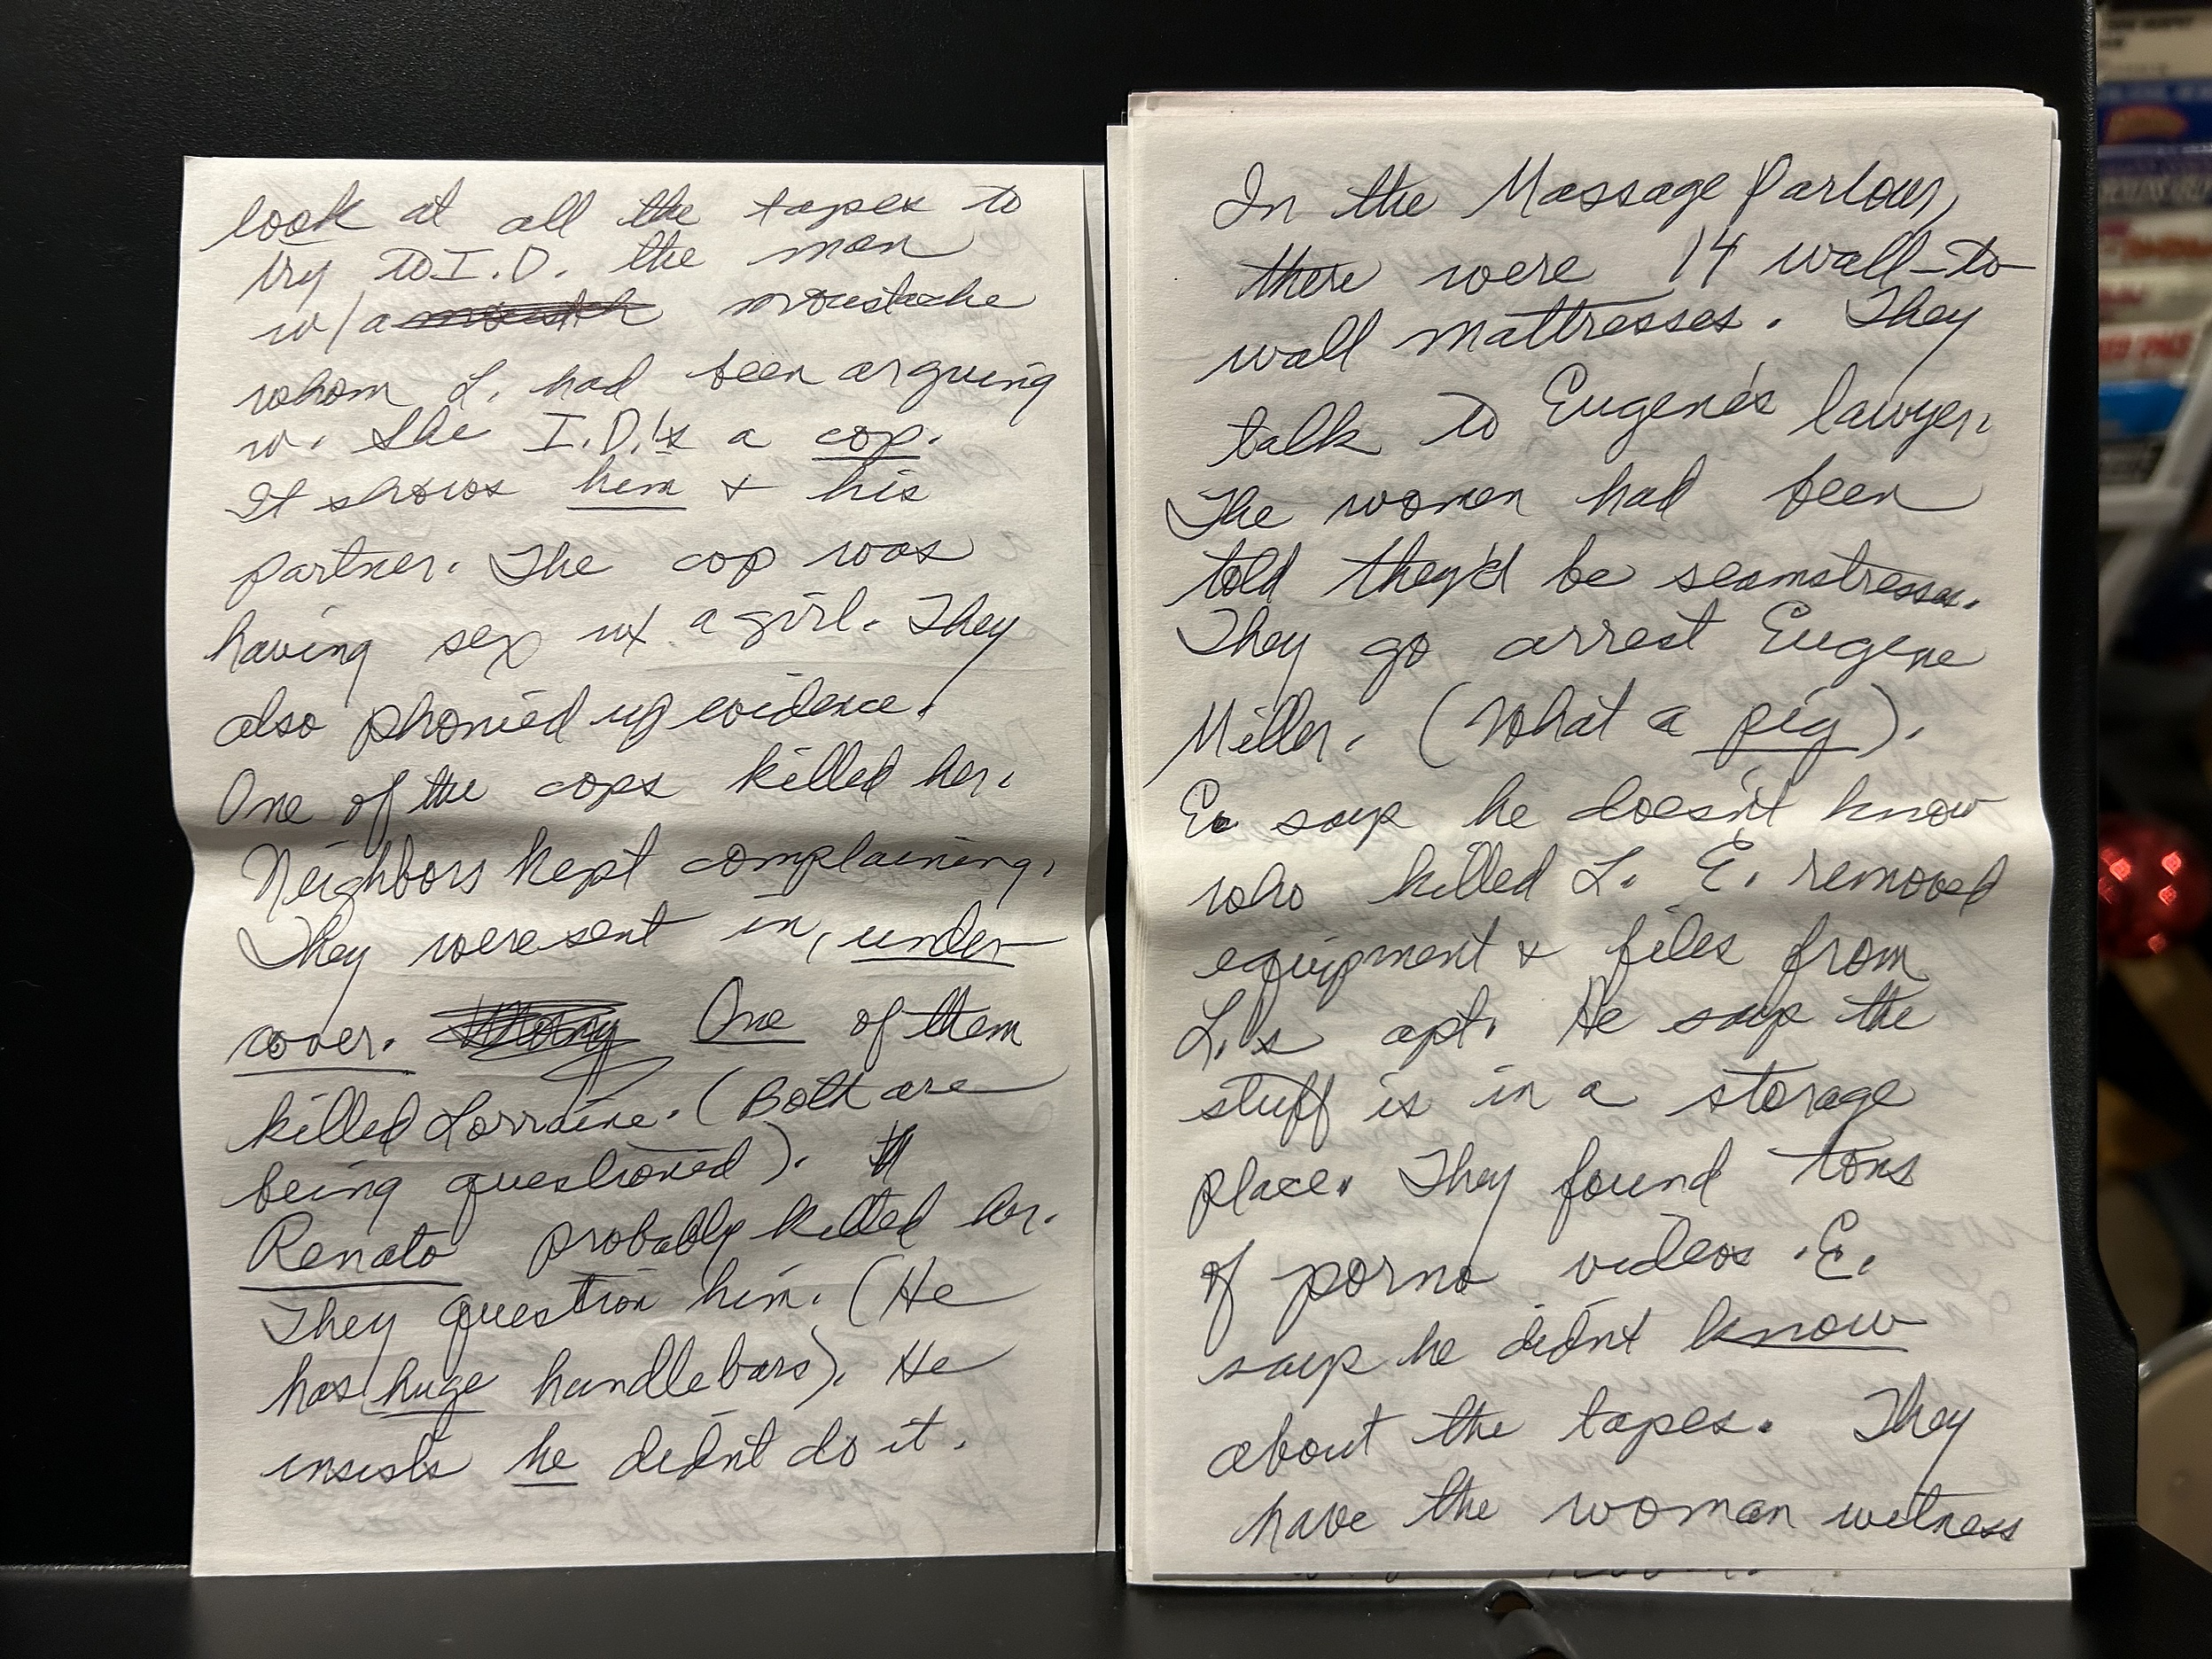 look at all the tapes to
try to I.D. the man
w/a moustache
whom L. had been arguing
w. She I.D.'s a cop.
It shows him & his
partner. The cop was
having sex w/ a girl. They
also phonied up evidence.
One of the cops killed her.
Neighbors kept complaining.
They were sent in, under-
cover. One of them
killed Lorraine. (Both are
being questioned).
Renato probably killed her.
They question him. (He
has huge handlebars). He
insists he didn't do it.
In the Massage Parlour,
there were 14 wall-to-
wall mattresses. They
talk to Eugene's lawyer.
The women had been
told they'd be seamstresses.
They go arrest Eugene
Miller. (What a pig).
E. says he doesn't know
who killed L. E. removed
equipment & files from
L.'s apt. He says the
stuff is in a storage
place. They found tons
of porno videos. E.
says he didn't know
about the tapes. They
have the woman witness